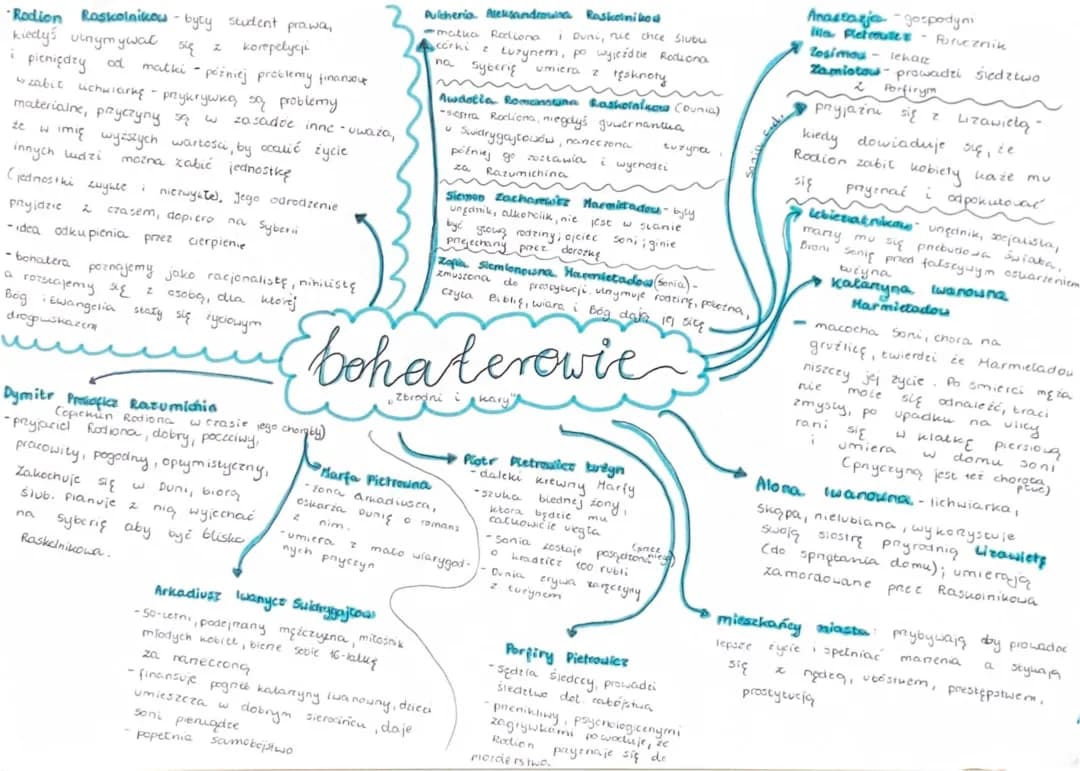 · Rodion Raskolnikow - były student prawa,
kiedyś utrzymywać się z korepetycji
i pieniędzy od matki - później problemy finansowe
zabił lichwiarkę - przykrywką są problemy
materialne, przyczyny są w zasadzie inne - uważa,
że w imię wyższych wartości, by ocalić życie
innych ludzi można zabić jednostkę
(jednostki zwykłe i niezwykłe). Jego odrodzenie
przyjdzie z czasem, dopiero na Syberii
- idea odkupienia przez cierpienie
- bohatera poznajemy jako racjonalistę, nihilistę
a rozstajemy się z osobą, dla której
Bóg i Ewangelia stały się życiowym
drogowskazem
Pulcheria Aleksandrowna Raskolnikow
- matka Rodiona i Duni, nie chce ślubu
córki z Łużynem, po wyjeździe Rodiona
na Syberię umiera z tęsknoty
Awdotia Romanowna Raskolnikow (Dunia)
- siostra Rodiona, niegdyś guwernantka
u Swidrygajłowów, narzeczona Łużyna,
później go zostawia i wychodzi
za Razumichina
Siemion Zacharowicz Marmieładow - były
urzędnik, alkoholik, nie jest w stanie
być głową rodziny; ojciec Soni; ginie
przejechany przez dorożkę
Zofia Siemionowna Marmieładow (Sonia) -
zmuszona do prostytucji, utrzymuje rodzinę, pobożna,
czyta Biblię, wiara i Bóg dają jej siłę
Anastazja - gospodyni
Ilia Pietrowicz - Porucznik
Zosimow - lekarz
Zamiotow - prowadzi śledztwo
z Porfirym
Sonia cd.
przyjaźni się z Lizawietą -
kiedy dowiaduje się, że
Rodion zabił kobiety każe mu
się przyznać i odpokutować
Lebieziatnikow - urzędnik, socjalista,
marzy mu się przebudowa świata,
Broni Sonię przed fałszywym oskarżeniem
Łużyna
Katarzyna Iwanowna
Marmieładow
- macocha Soni, chora na
gruźlicę, twierdzi że Marmieładow
niszczy jej życie. Po śmierci męża
nie może się odnaleźć, traci
zmysły, po upadku na ulicy
rani się w klatkę piersiową
i umiera w domu Soni
(przyczyną jest też choroba
płuc)
bohaterowie
„Zbrodni i kary"
Dymitr Prokoficz Razumichin
(opiekun Rodiona w czasie jego choroby)
- przyjaciel Rodiona, dobry, poczciwy,
pracowity, pogodny, optymistyczny,
Zakochuje się w Duni, biorą
ślub. Planuje z nią wyjechać
na Syberię aby być blisko
Raskolnikowa.
Marfa Pietrowna
- żona Arkadiusza,
oskarża Dunię o romans
z nim.
- umiera z mało wiarygod-
nych przyczyn
Piotr Pietrowicz Łużyn
- daleki krewny Marfy
- szuka biednej żony,
która będzie mu
całkowicie uległa
- Sonia zostaje posądzona (przez niego)
o kradzież 100 rubli
- Dunia zrywa zaręczyny
z Łużynem
Alona Iwanowna - lichwiarka,
skąpa, nielubiana, wykorzystuje
swoją siostrę przyrodnią Lizawietę
(do sprzątania domu); umierają
zamordowane przez Raskolnikowa
Arkadiusz Iwanycz Swidrygajłow
- 50-letni, podejrzany mężczyzna, miłośnik
młodych kobiet, bierze sobie 16-latkę
za narzeczoną
- finansuje pogrzeb Katarzyny Iwanowny, dzieci
umieszcza w dobrym sierocińcu, daje
Soni pieniądze
- popełnia samobójstwo
Porfiry Pietrowicz
- sędzia śledczy, prowadzi
śledztwo dot. zabójstwa
- przenikliwy, psychologicznymi
zagrywkami powoduje, że
Rodion przyznaje się do
morderstwa.
mieszkańcy miasta: przybywają aby prowadzić
lepsze życie i spełniać marzenia a stykają
się z nędzą, ubóstwem, przestępstwem,
prostytucją